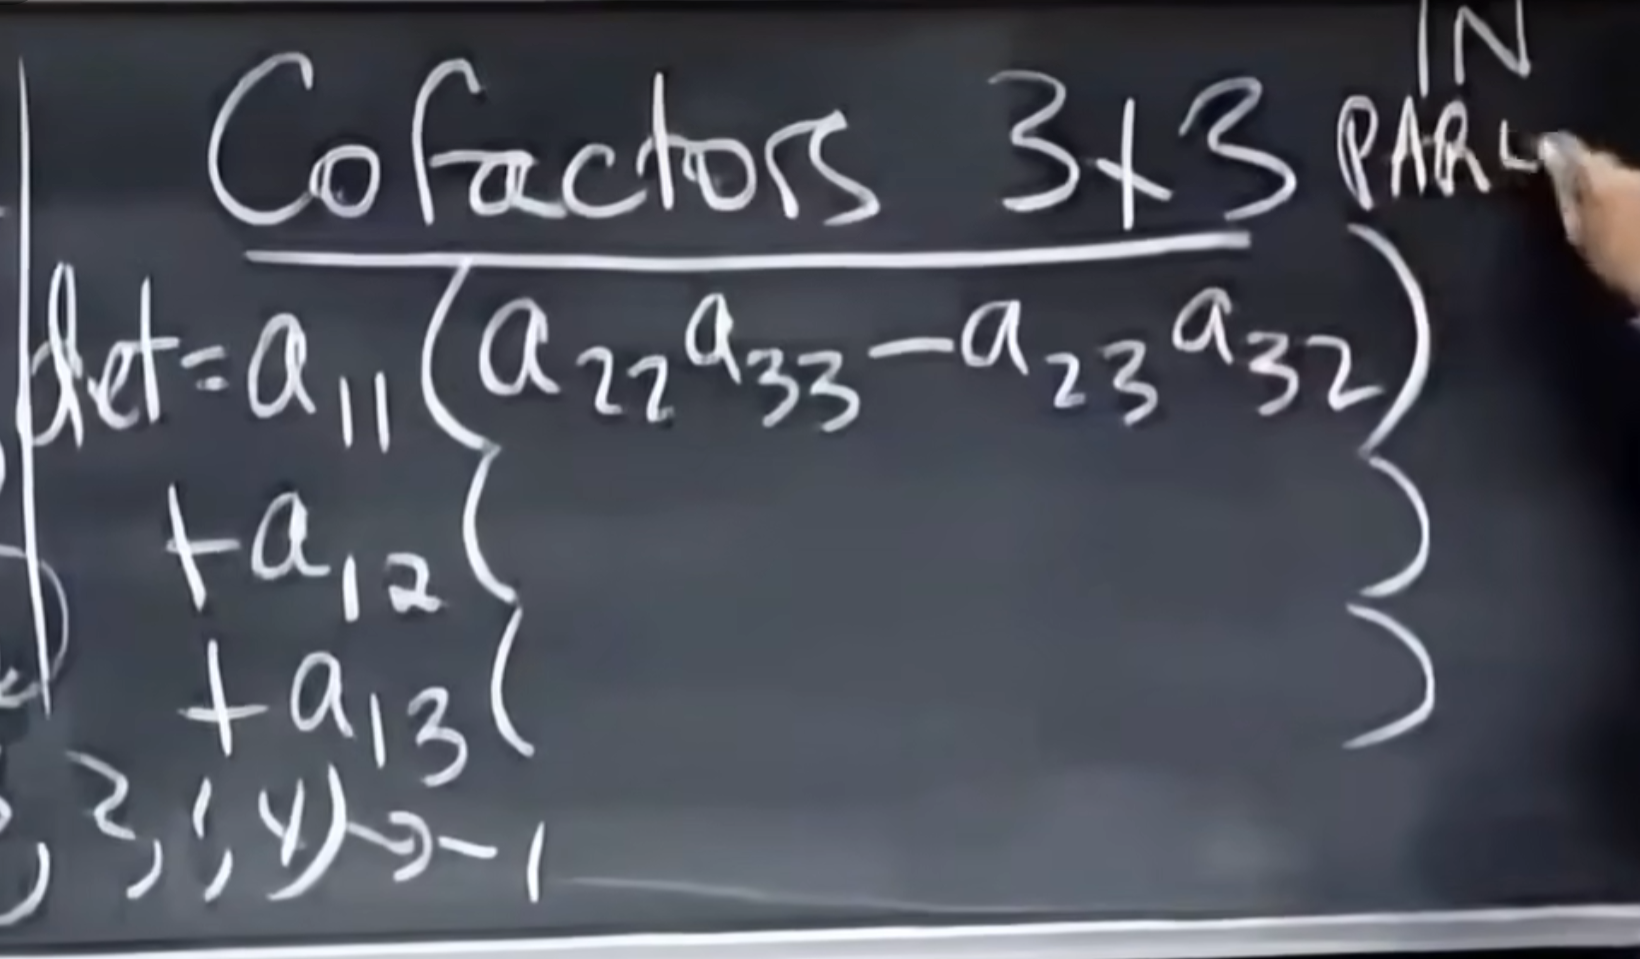 Cofactors 3x3 IN
PAR
det = a11 (a22a33 - a23a32)
+a12 ( )
+a13 ( )
, 2, 1, 4) → -1